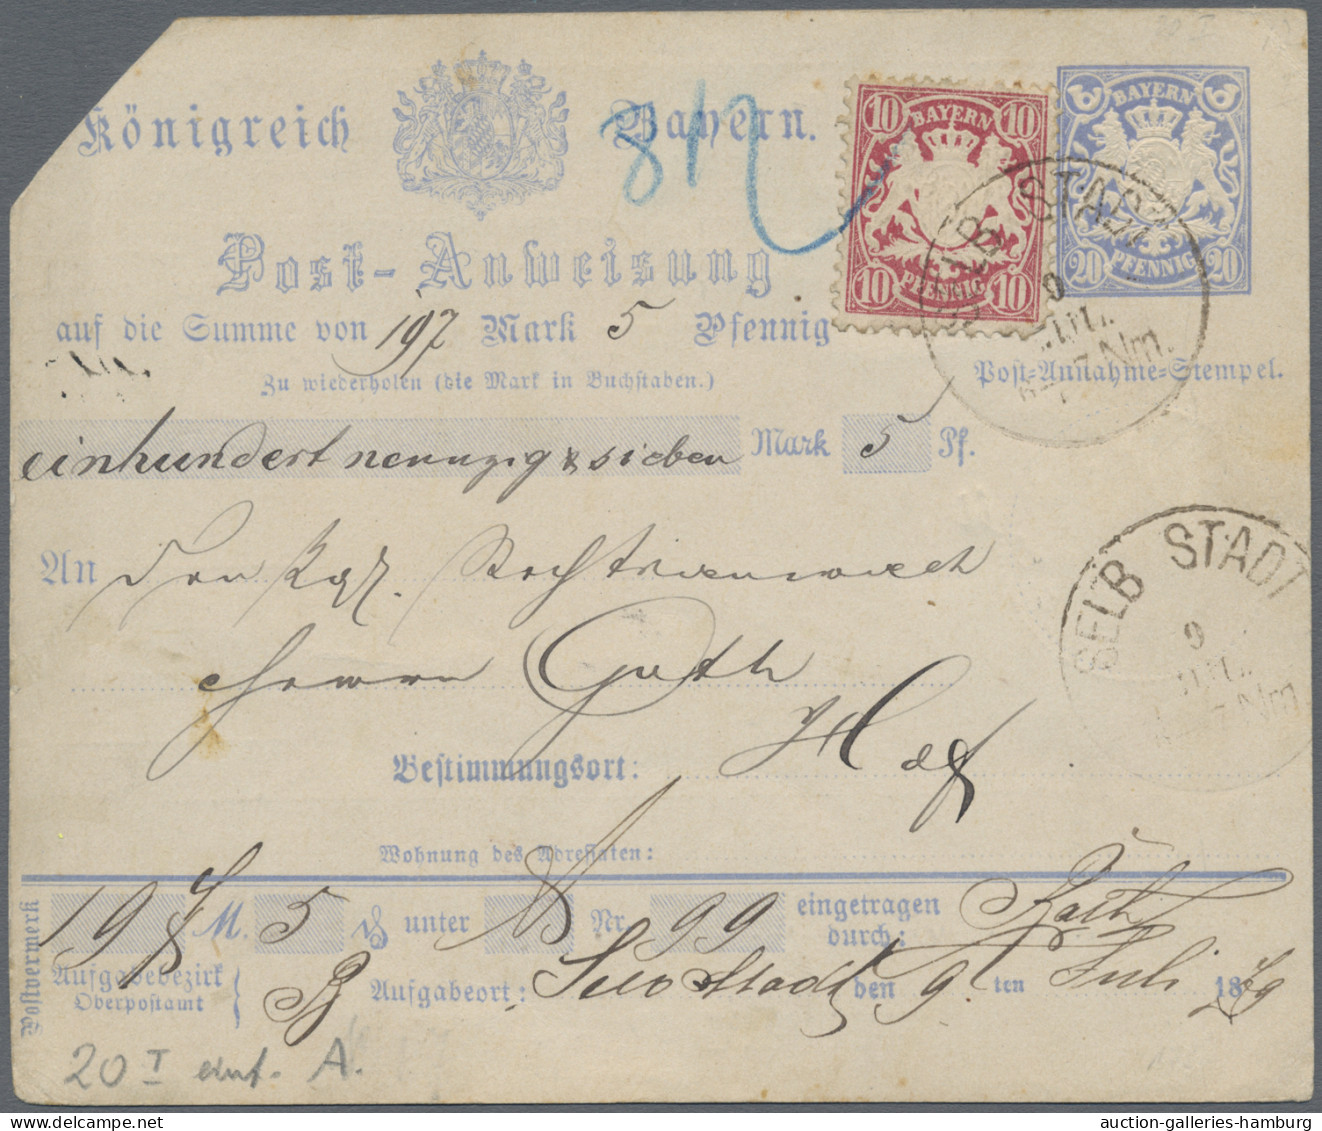 Königreich Bayern.
812
BAYERN
10 10
10 PFENNIG 10
BAYERN
20 PFENNIG 20
SELB STADT
9
JUL.
7 Nm.
Post-Anweisung
auf die Summe von 197 Mark 5 Pfennig
Zu wiederholen (die Mark in Buchstaben.)
Post-Annahme-Stempel.
einhundert neunzig & sieben Mark 5 Pf.
An den Kgl.
Herrn
SELB STADT
9
JUL.
7 Nm.
Bestimmungsort: Hof
Wohnung des Adressaten:
Postvermerk
197 M. 5 ₰ unter Nr. 99 eingetragen durch:
Aufgabebezirk
Oberpostamt
B Aufgabeort: Selb Stadt den 9 ten Juli 1879
20 I A.
auction-galleries-hamburg